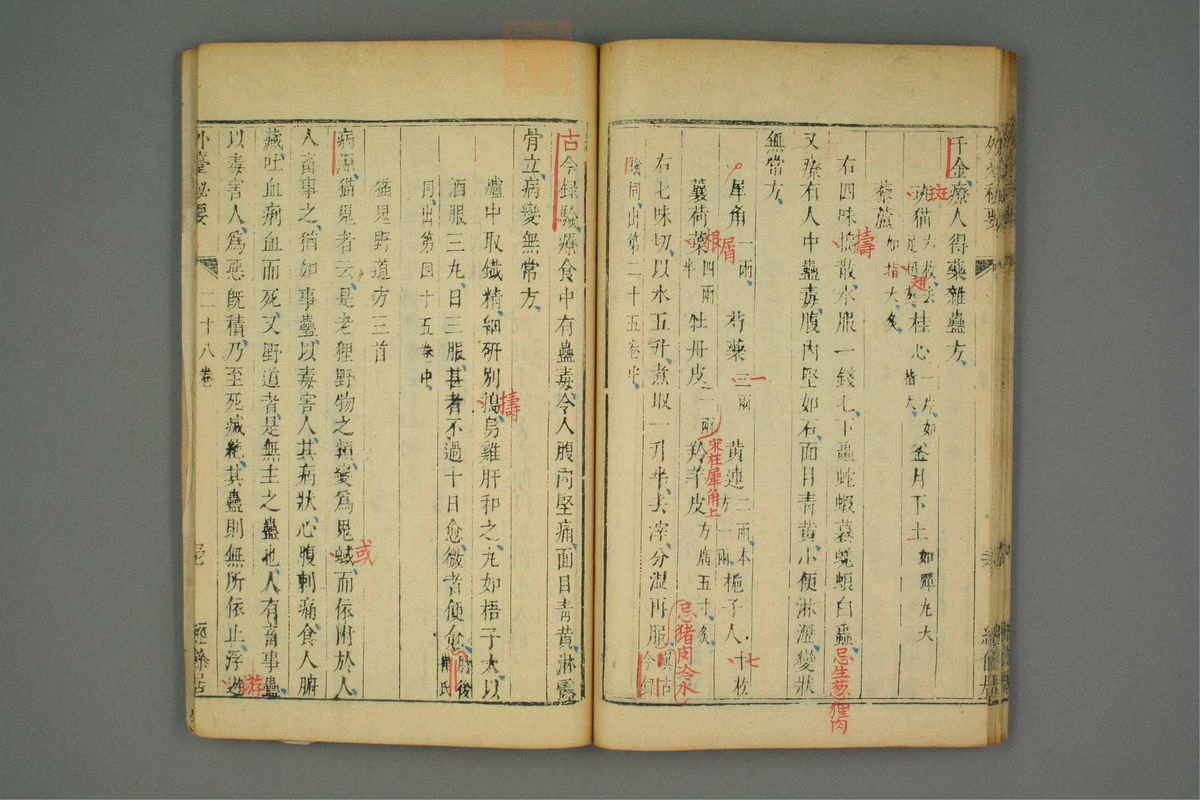 千金療人得藥雜蠱方
斑猫六枚去足翅熬桂心一尺如指大釜月下土如彈丸大
藜蘆如指大炙
右四味擣散水服一錢七下蟲蛇蝦蟇蜣蜋白蟲忌生葱狸肉
又療有人中蠱毒腹内堅如石面目青黄小便淋瀝變狀
無常方
犀角一兩屑芍藥三兩一黄連二兩本方一兩梔子人十枚七
蘘荷葉四兩半根牡丹皮二一兩羚羊皮方廣五寸炙
宋在犀角上
右七味切以水五升煮取一升半去滓分温再服忌猪肉冷水古今録
驗同出第二十五卷中
古今録驗療食中有蠱毒令人腹内堅痛面目青黄淋露
骨立病變無常方
爐中取鐵精細研别擣烏雞肝和之丸如梧子大以
酒服三丸日三服甚者不過十日愈微者便愈肘後
同出第四十五卷中
猫鬼野道方三首
病源猫鬼者云是老狸野物之類變爲鬼蜮而依附於人
或
人畜事之猶如事蠱以毒害人其病狀心腹刺痛食人腑
藏吐血痢血而死又野道者是無主之蠱也人有畜事蠱
以毒害人爲惡既積乃至死滅絶其蠱則無所依止浮遊
游
外臺秘要 二十八卷 經餘居